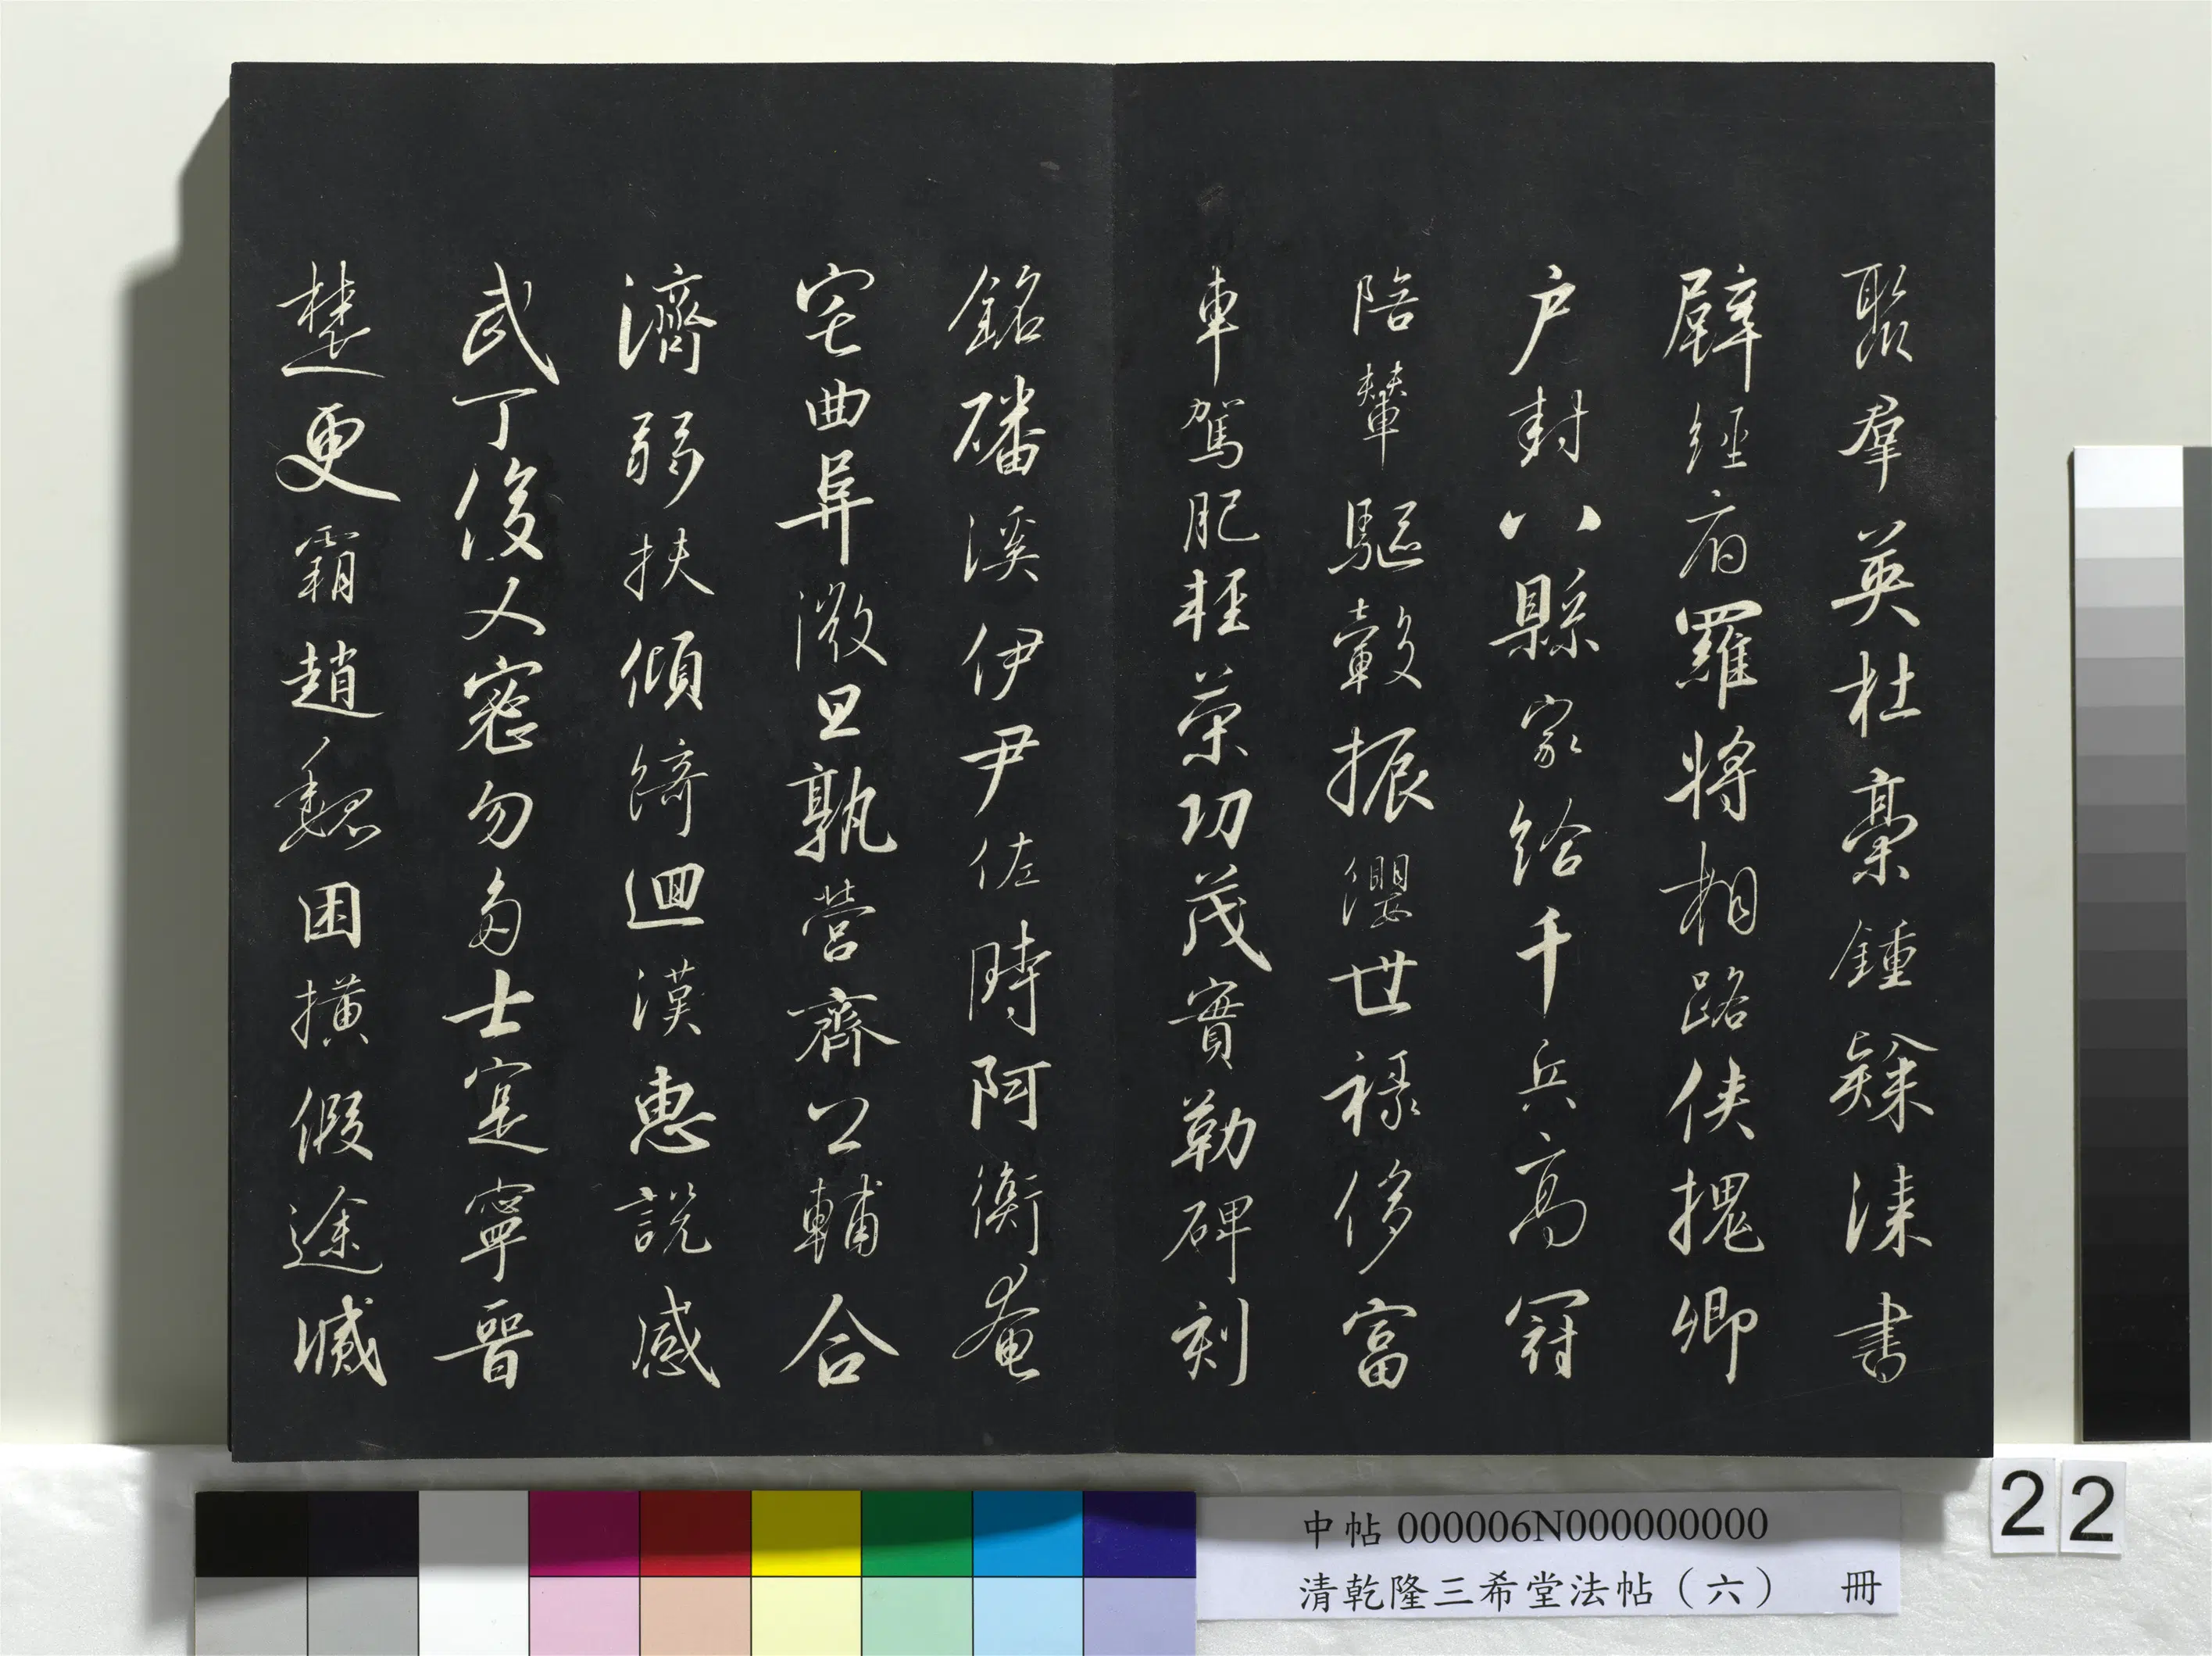 聚羣英杜稾鍾隸漆書
壁經府羅將相路俠槐卿
户封八縣家給千兵高冠
陪輦驅轂振纓世祿侈富
車駕肥輕策功茂實勒碑刻
銘磻溪伊尹佐時阿衡奄
宅曲阜微旦孰營齊公輔合
濟弱扶傾綺迴漢惠說感
武丁俊乂密勿多士寔寧晉
楚更霸趙魏困橫假途滅
中帖 000006N000000000
清乾隆三希堂法帖（六） 冊
22